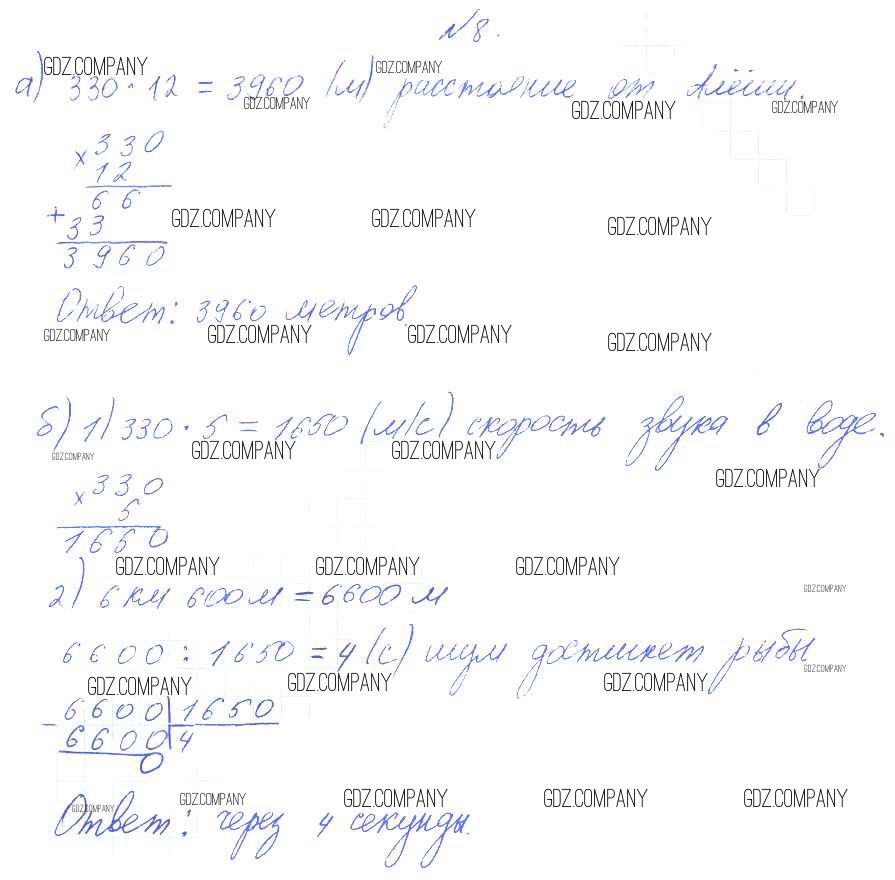 №8.
а) 330 · 12 = 3960 (м) расстояние от Алёши.
× 330
12
66
+ 33
3960
Ответ: 3960 метров.
б) 1) 330 · 5 = 1650 (м/с) скорость звука в воде.
× 330
5
1650
2) 6 км 600 м = 6600 м
6600 : 1650 = 4 (с) шум достигнет рыбы
- 6600 | 1650
6600 | 4
0
Ответ: через 4 секунды.
GDZ.COMPANY GDZ.COMPANY
GDZ.COMPANY GDZ.COMPANY GDZ.COMPANY
GDZ.COMPANY GDZ.COMPANY GDZ.COMPANY
GDZ.COMPANY GDZ.COMPANY GDZ.COMPANY GDZ.COMPANY
GDZ.COMPANY GDZ.COMPANY GDZ.COMPANY
GDZ.COMPANY
GDZ.COMPANY GDZ.COMPANY GDZ.COMPANY
GDZ.COMPANY
GDZ.COMPANY GDZ.COMPANY GDZ.COMPANY GDZ.COMPANY
GDZ.COMPANY GDZ.COMPANY GDZ.COMPANY GDZ.COMPANY GDZ.COMPANY